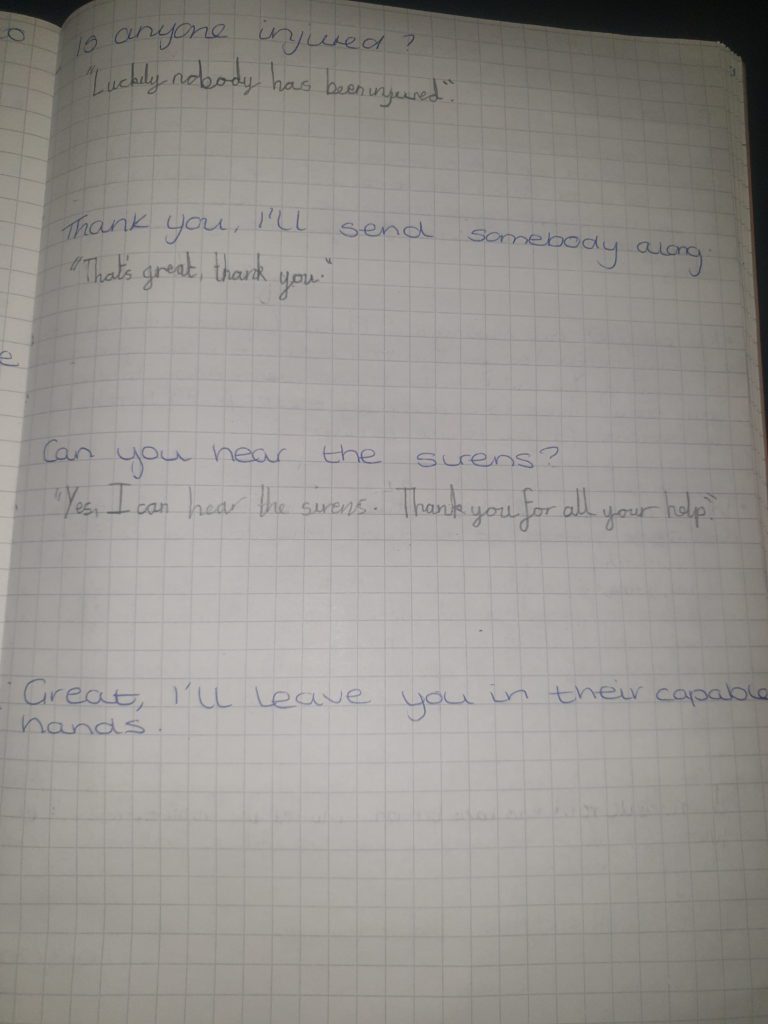 Is anyone injured?
"Luckily nobody has been injured".
Thank you, I'll send somebody along.
"That's great, thank you."
Can you hear the sirens?
"Yes, I can hear the sirens. Thank you for all your help."
Great, I'll leave you in their capable
hands.